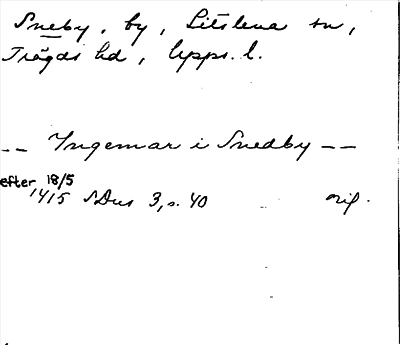 Sneby, by, Litslena sn,
Trögds hd, Upps. l.
-- Yngemar i Snedby --
efter 18/5
1415 SDns 3, s. 40 orig.